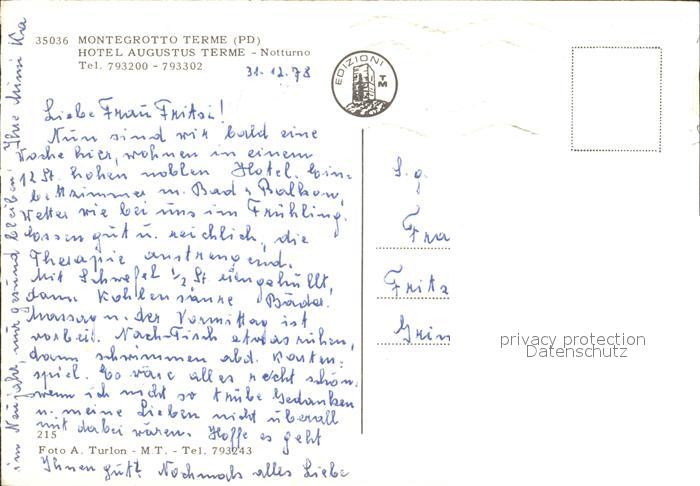 35036 MONTEGROTTO TERME (PD)
HOTEL AUGUSTUS TERME - Notturno
Tel. 793200 - 793302
31-12.78
EDIZIONI
TM
Liebe Frau Fritzi!
Nun sind wir bald eine
Woche hier, wohnen in einem
12 St. hohen noblen Hotel. Ein-
bettzimmer m. Bad & Balkon,
Wetter wie bei uns im Frühling.
Essen gut u. reichlich, die
Therapie anstrengend.
Mit Schwefel 1/2 St eingehüllt,
dann Kohlensäure Bäder
Massag u. der Vormittag ist
vorbei. Nach Tisch etwas ruhen,
dann schwimmen abd. Karten-
spiel. Es wäre alles recht schön,
wenn ich nicht so trübe Gedanken
u. meine Lieben nicht überall
mit dabei wären. Hoffe es geht
215
Foto A. Turlon - M.T. - Tel. 793243
Ihnen gut? Nochmals alles Liebe
im Neujahr, nur gesund bleiben! Ihre Mimi
S. g.
Fra
Fritz
Grin
privacy protection
Datenschutz